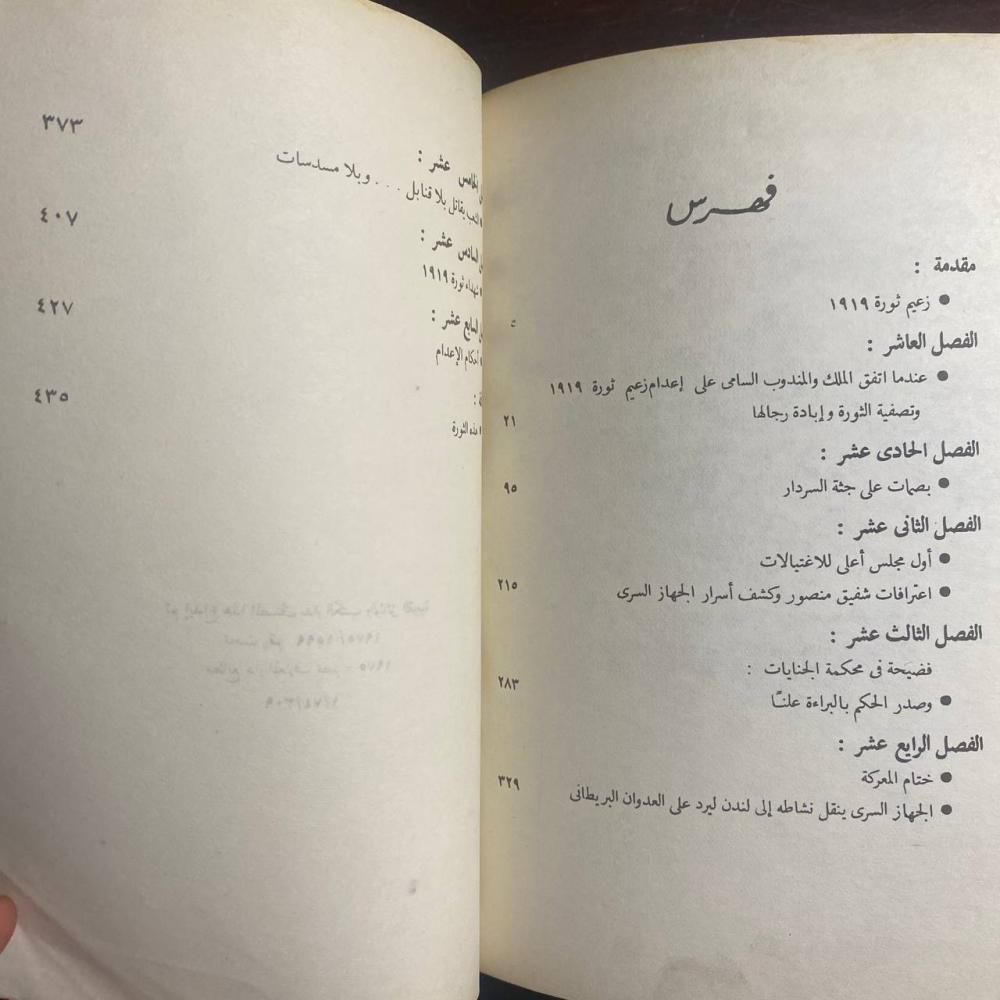 فهرس
مقدمة :
● زعيم ثورة ١٩١٩
٥
الفصل العاشر :
● عندما اتفق الملك والمندوب السامى على إعدام زعيم ثورة ١٩١٩
وتصفية الثورة وإبادة رجالها ٢١
الفصل الحادى عشر :
● بصمات على جثة السردار ٩٥
الفصل الثانى عشر :
● أول مجلس أعلى للاغتيالات
● اعترافات شفيق منصور وكشف أسرار الجهاز السرى ٢١٥
الفصل الثالث عشر :
فضيحة فى محكمة الجنايات :
● وصدر الحكم بالبراءة علنًا ٢٨٣
الفصل الرابع عشر :
● ختام المعركة
● الجهاز السرى ينقل نشاطه إلى لندن ليرد على العدوان البريطانى ٣٢٩
الخامس عشر :
● الشعب يقاتل بلا قنابل . . . وبلا مسدسات ٣٧٣
السادس عشر :
● شهداء ثورة ١٩١٩ ٤٠٧
السابع عشر :
● أحكام الإعدام ٤٢٧
● هذه الثورة ٤٣٥